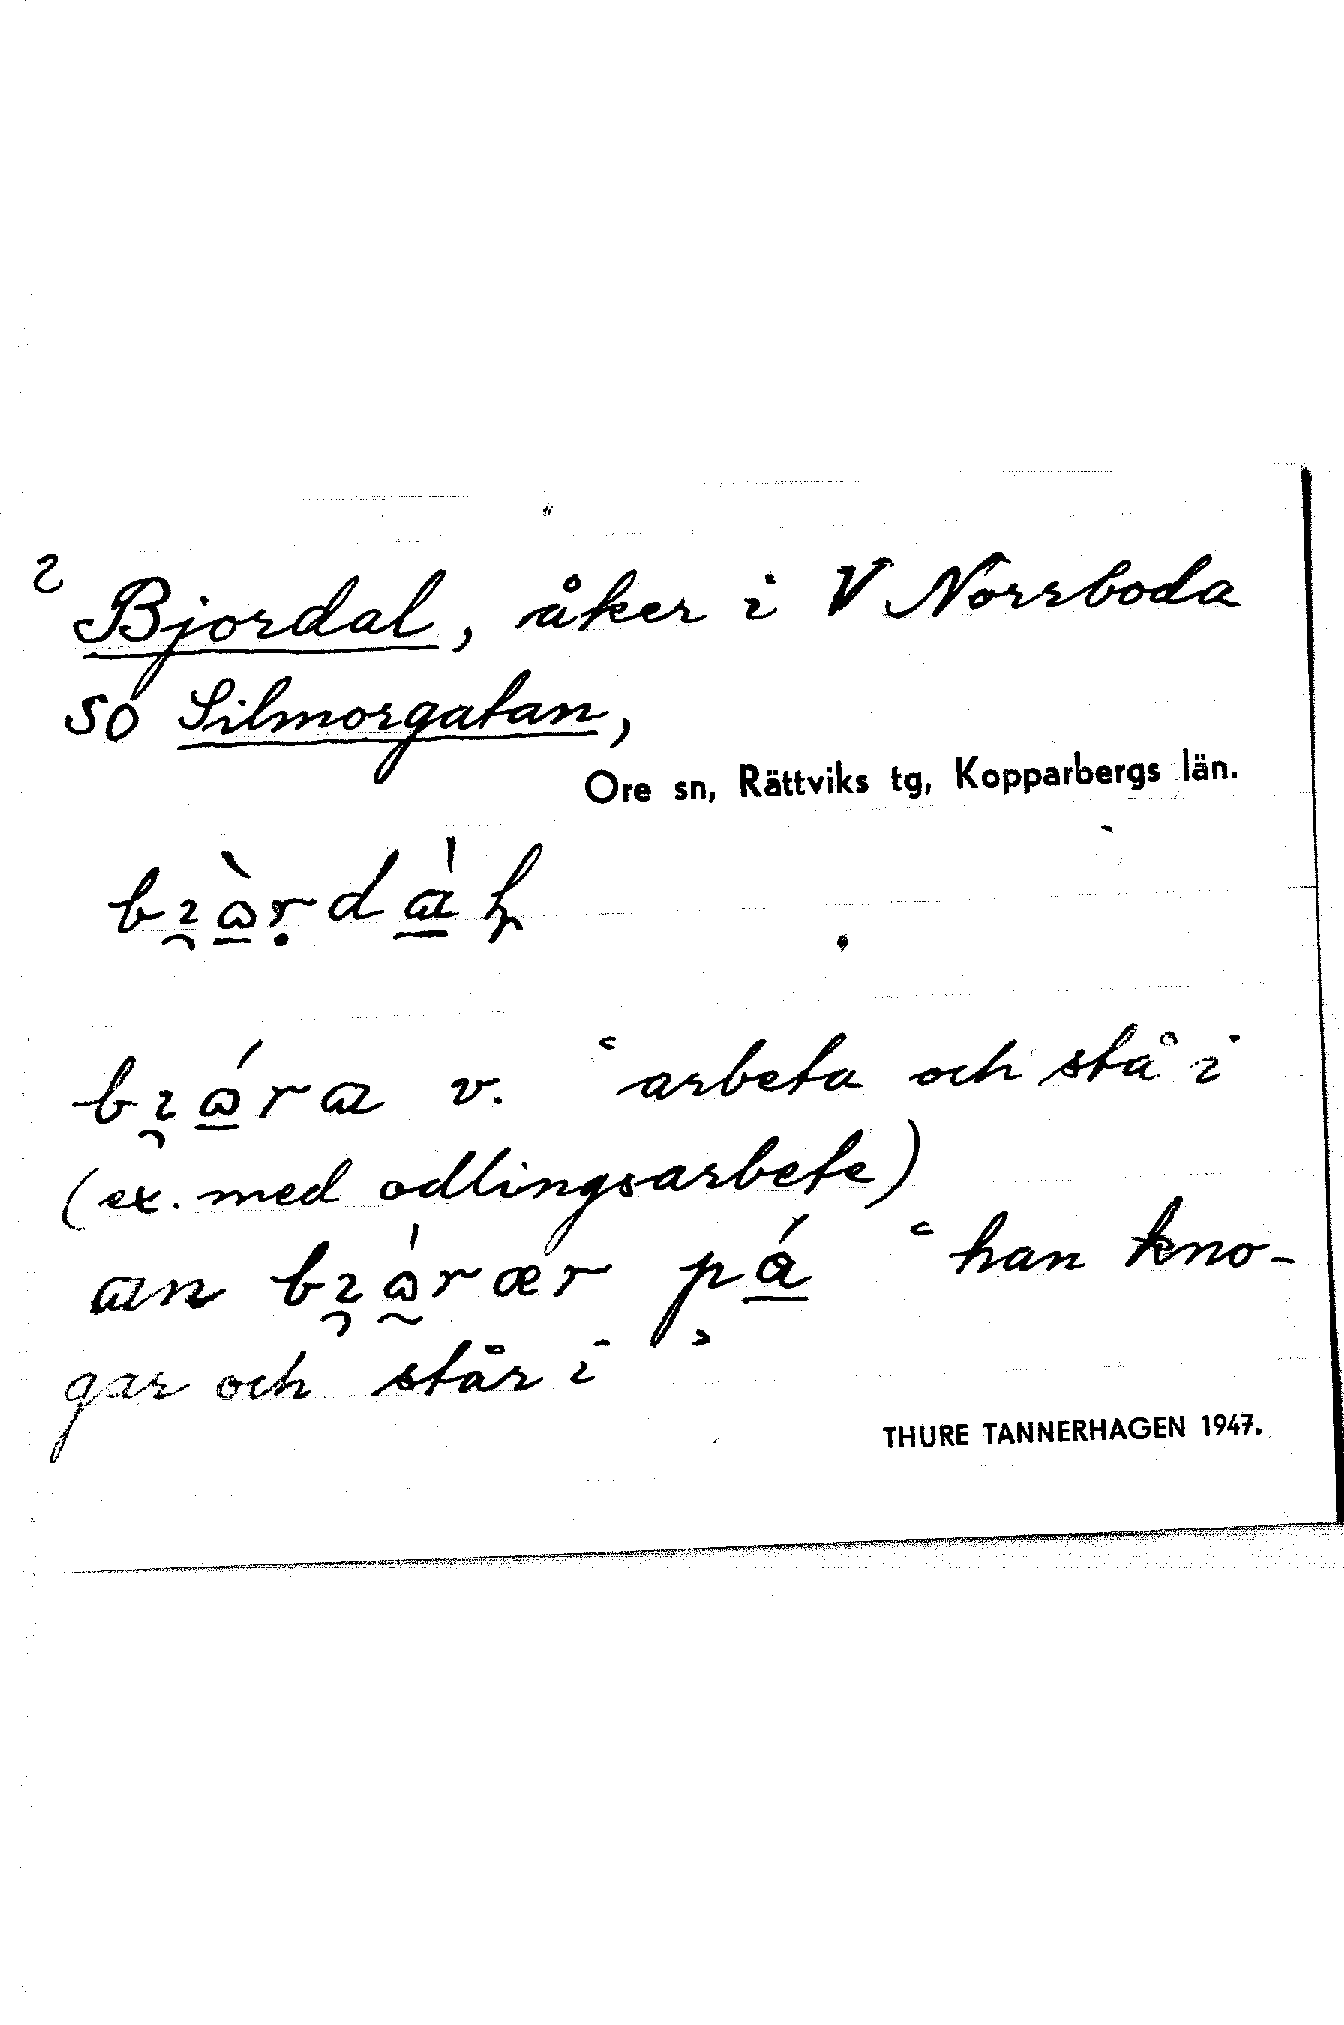 2 Bjordal, åker i V Norrboda
SO Silmorgatan,
Ore sn, Rättviks tg, Kopparbergs län.
v. ʿarbeta och stå i
(ex. med odlingsarbete)
an pá ʿhan kno-
gar och står i ʾ
THURE TANNERHAGEN 1947.